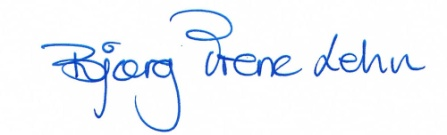 Bjørg Irene Lehn